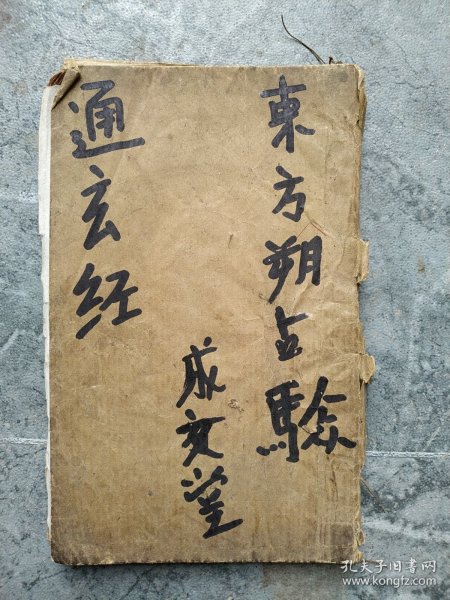 東方朔占驗
成文堂
通玄经
孔夫子旧书网
www.kongfz.com